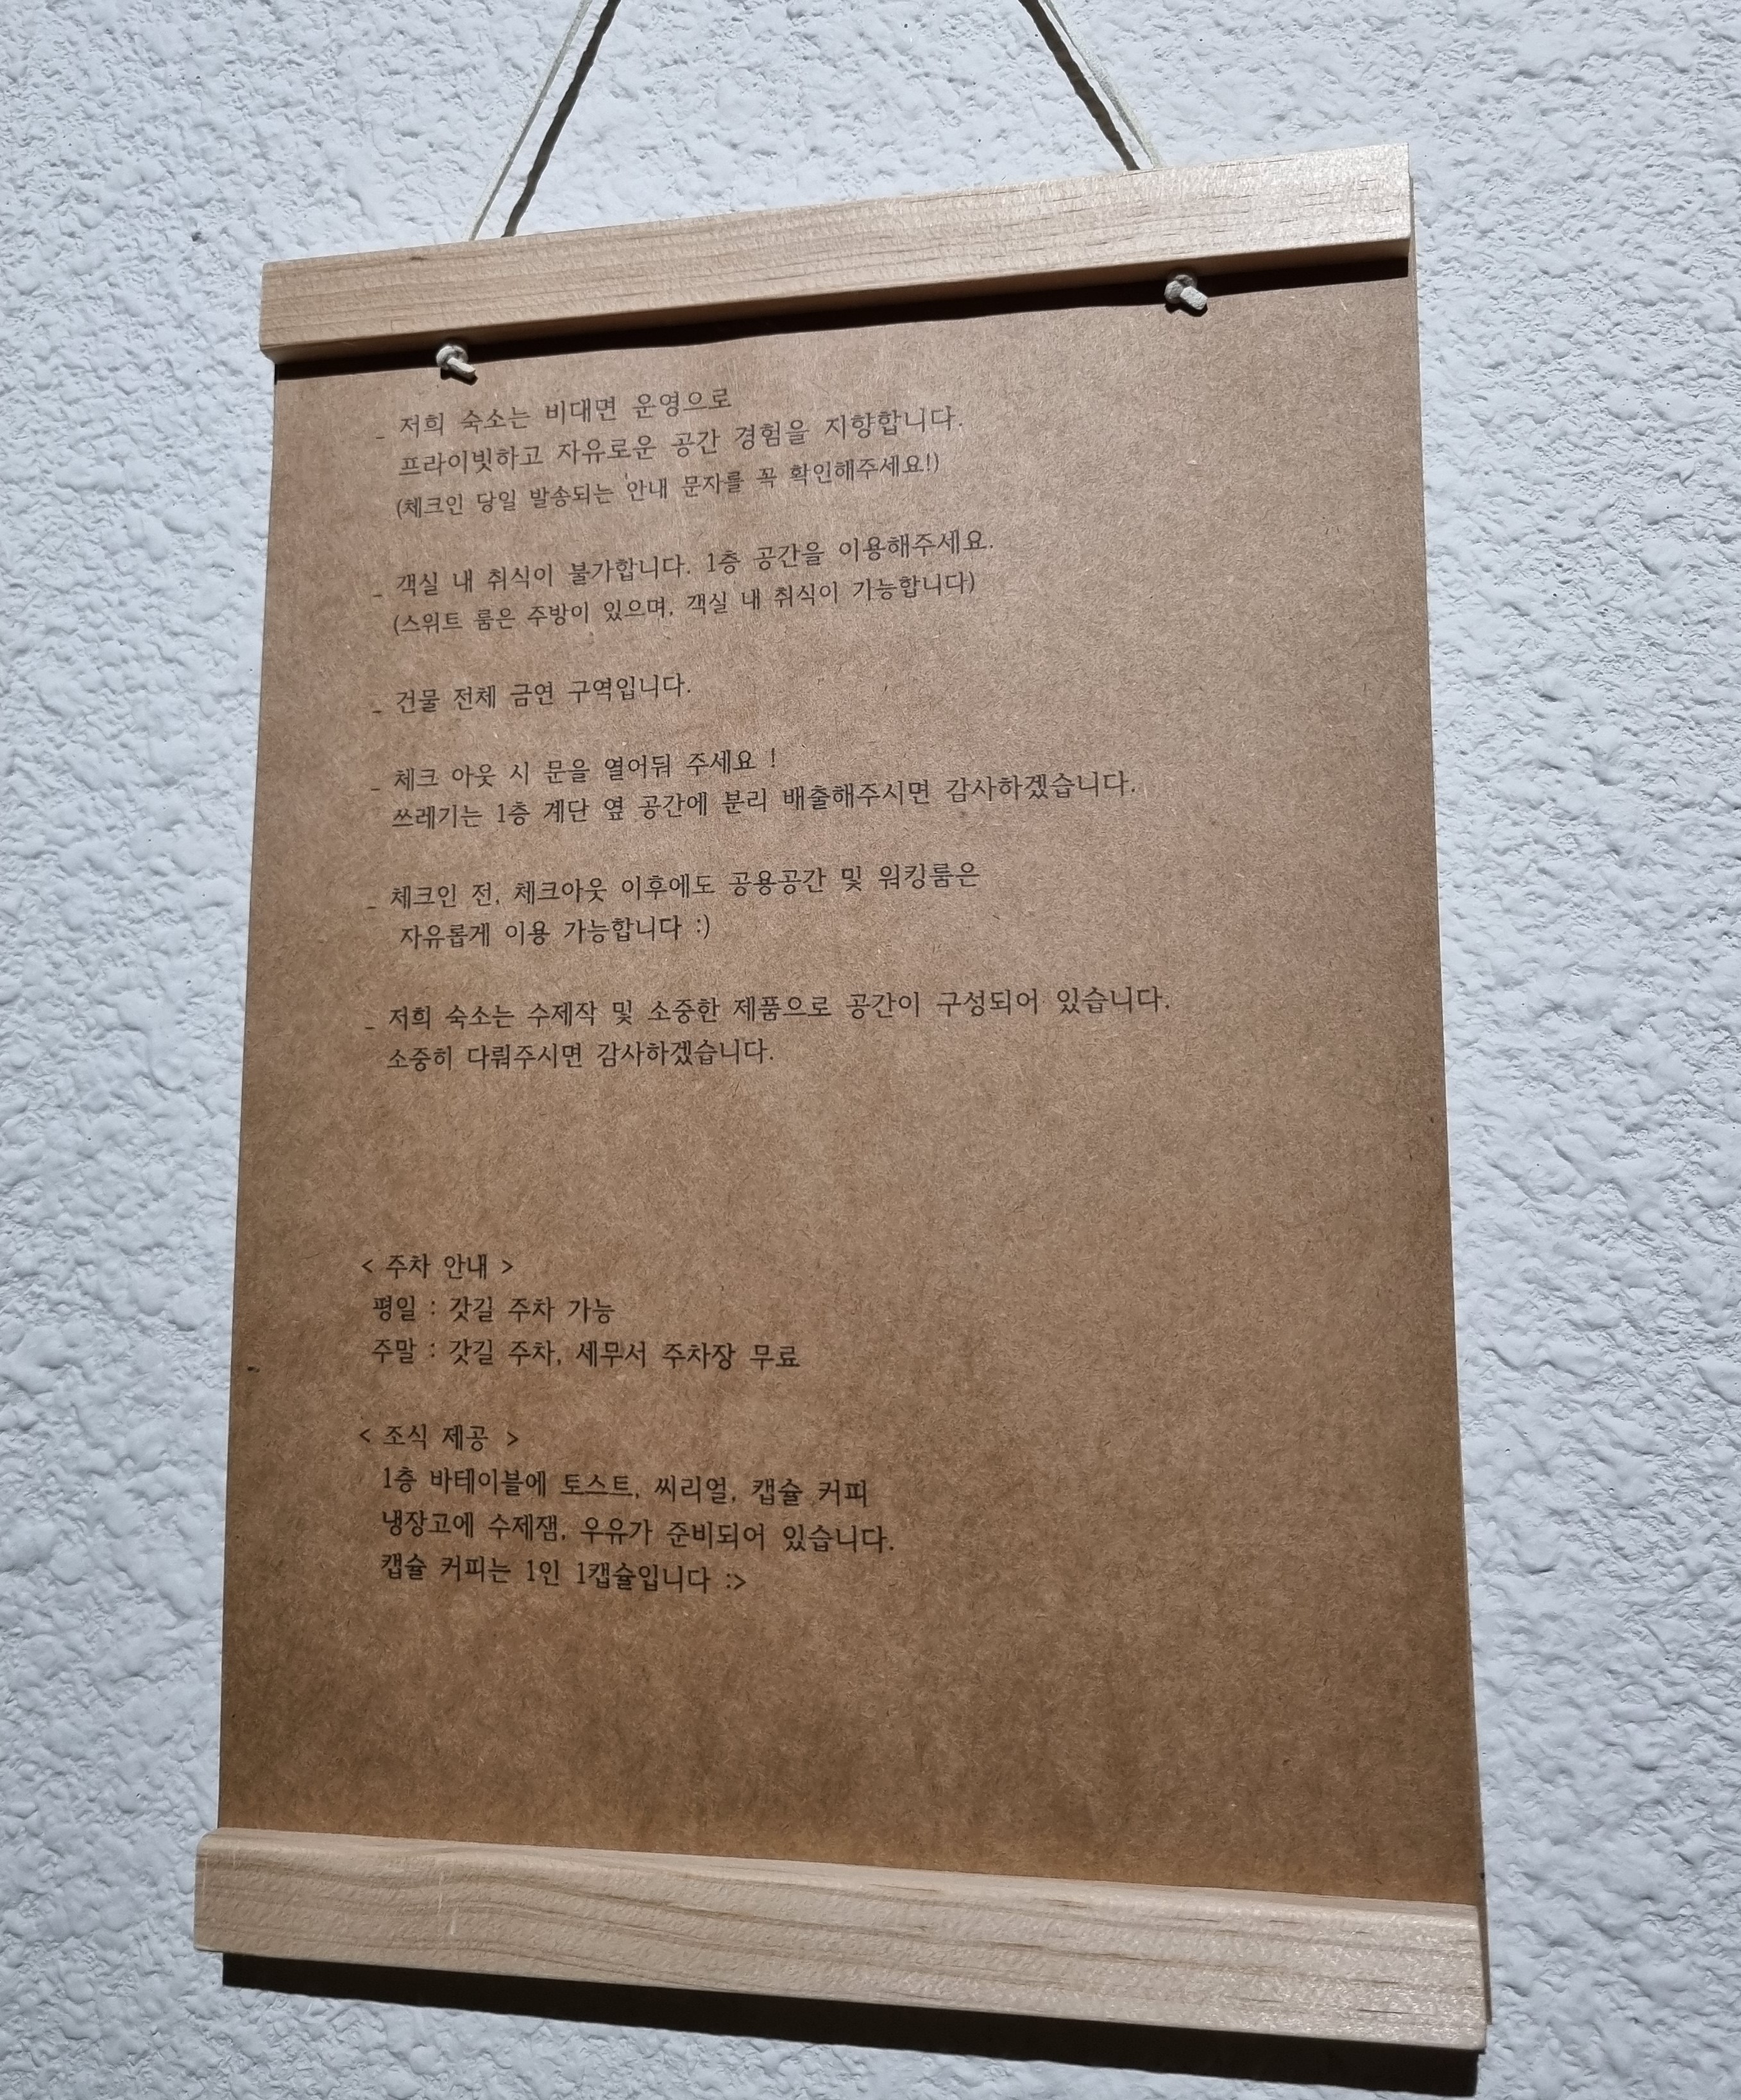 _ 저희 숙소는 비대면 운영으로
프라이빗하고 자유로운 공간 경험을 지향합니다.
(체크인 당일 발송되는 '안내 문자를 꼭 확인해주세요!)
_ 객실 내 취식이 불가합니다. 1층 공간을 이용해주세요.
(스위트 룸은 주방이 있으며, 객실 내 취식이 가능합니다)
_ 건물 전체 금연 구역입니다.
_ 체크 아웃 시 문을 열어둬 주세요 !
쓰레기는 1층 계단 옆 공간에 분리 배출해주시면 감사하겠습니다.
_ 체크인 전, 체크아웃 이후에도 공용공간 및 워킹룸은
자유롭게 이용 가능합니다 :)
_ 저희 숙소는 수제작 및 소중한 제품으로 공간이 구성되어 있습니다.
소중히 다뤄주시면 감사하겠습니다.
< 주차 안내 >
평일 : 갓길 주차 가능
주말 : 갓길 주차, 세무서 주차장 무료
< 조식 제공 >
1층 바테이블에 토스트, 씨리얼, 캡슐 커피
냉장고에 수제잼, 우유가 준비되어 있습니다.
캡슐 커피는 1인 1캡슐입니다 :>